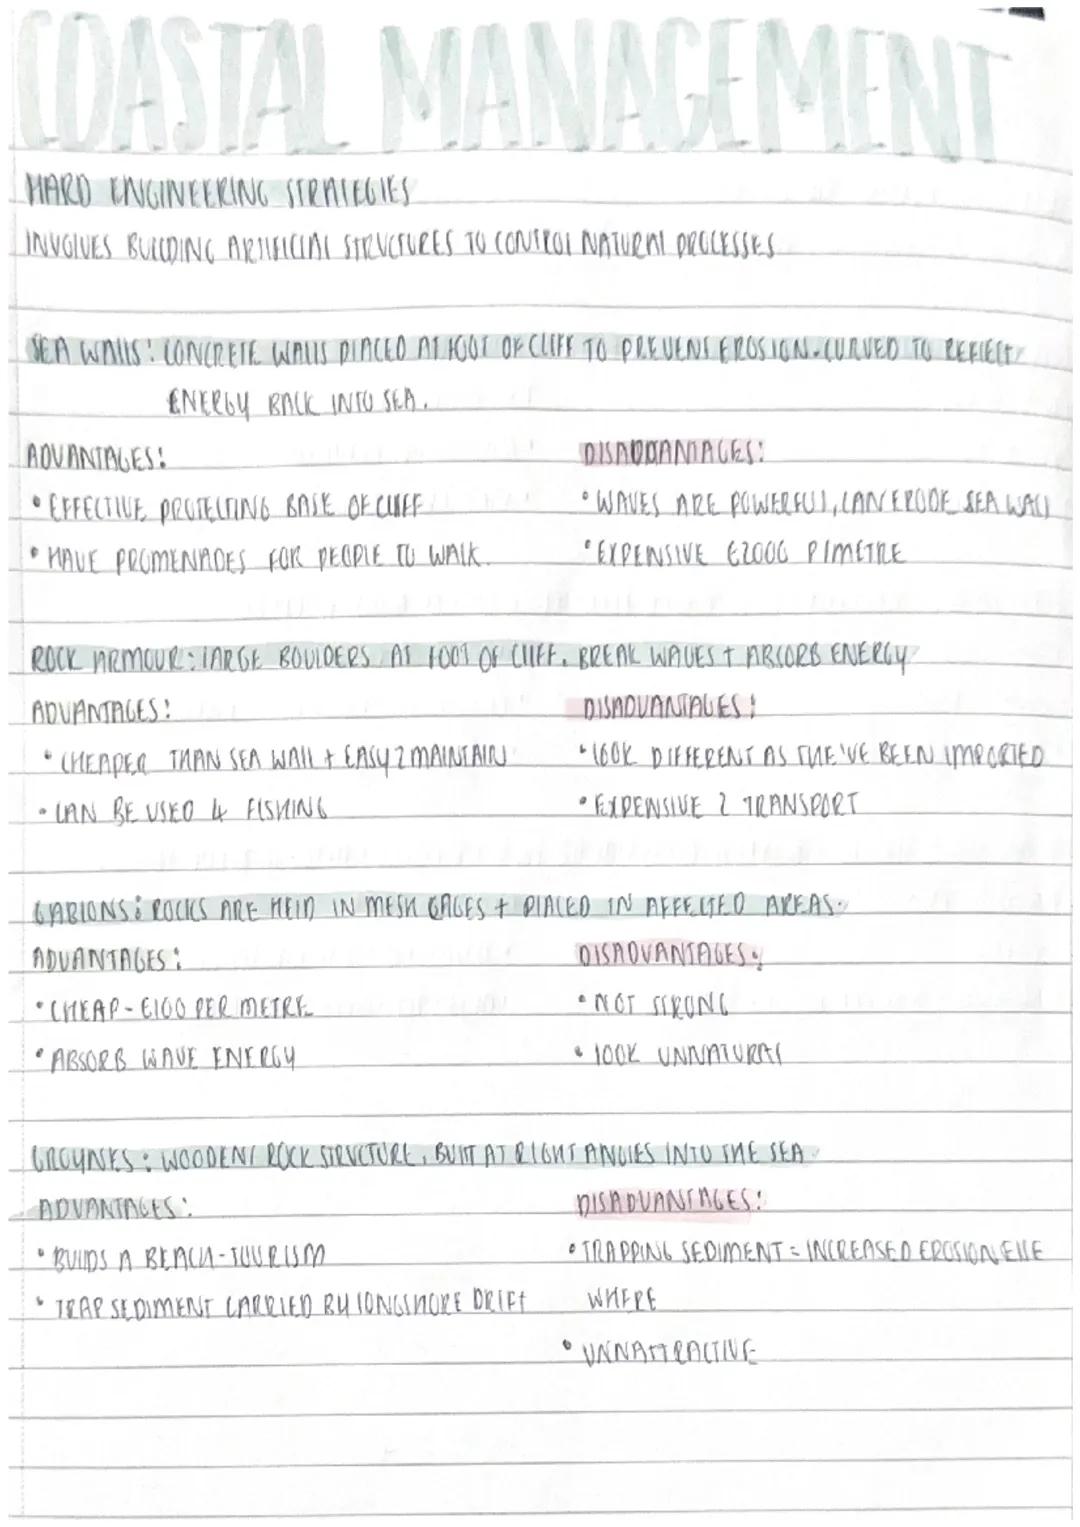 COASTAL MANAGEMENT
HARD ENGINEERING STRATEGIES
INVOLVES BUILDING ARTIFICIAL STRUCTURES TO CONTROL NATURAL PROCESSES
SEA WALLS: CONCRETE WALLS PLACED AT FOOT OF CLIFF TO PREVENT EROSION. CURVED TO REFLECT
ENERGY BACK INTO SEA.
ADVANTAGES:
• EFFECTIVE PROTECTING BASE OF CLIFF
• HAVE PROMENADES FOR PEOPLE TO WALK.
DISADVANTAGES:
• WAVES ARE POWERFUL, CAN ERODE SEA WALL
• EXPENSIVE £2000 P/METRE
ROCK ARMOUR: LARGE BOULDERS AT FOOT OF CLIFF. BREAK WAVES + ABSORB ENERGY
ADVANTAGES:
• CHEAPER THAN SEA WALL + EASY 2 MAINTAIN
• CAN BE USED 4 FISHING
DISADVANTAGES:
• LOOK DIFFERENT AS THE'VE BEEN IMPORTED
• EXPENSIVE 2 TRANSPORT
GABIONS: ROCKS ARE HELD IN MESH CAGES + PLACED IN AFFECTED AREAS.
ADVANTAGES:
• CHEAP - £100 PER METRE
• ABSORB WAVE ENERGY
DISADVANTAGES:
• NOT STRONG
• LOOK UNNATURAL
GROYNES: WOODEN/ ROCK STRUCTURE, BUILT AT RIGHT ANGLES INTO THE SEA
ADVANTAGES:
• BUILDS A BEACH - TOURISM
• TRAP SEDIMENT CARRIED BY LONGSHORE DRIFT
DISADVANTAGES:
• TRAPPING SEDIMENT = INCREASED EROSION ELSE
WHERE
• UNNATTRACTIVE